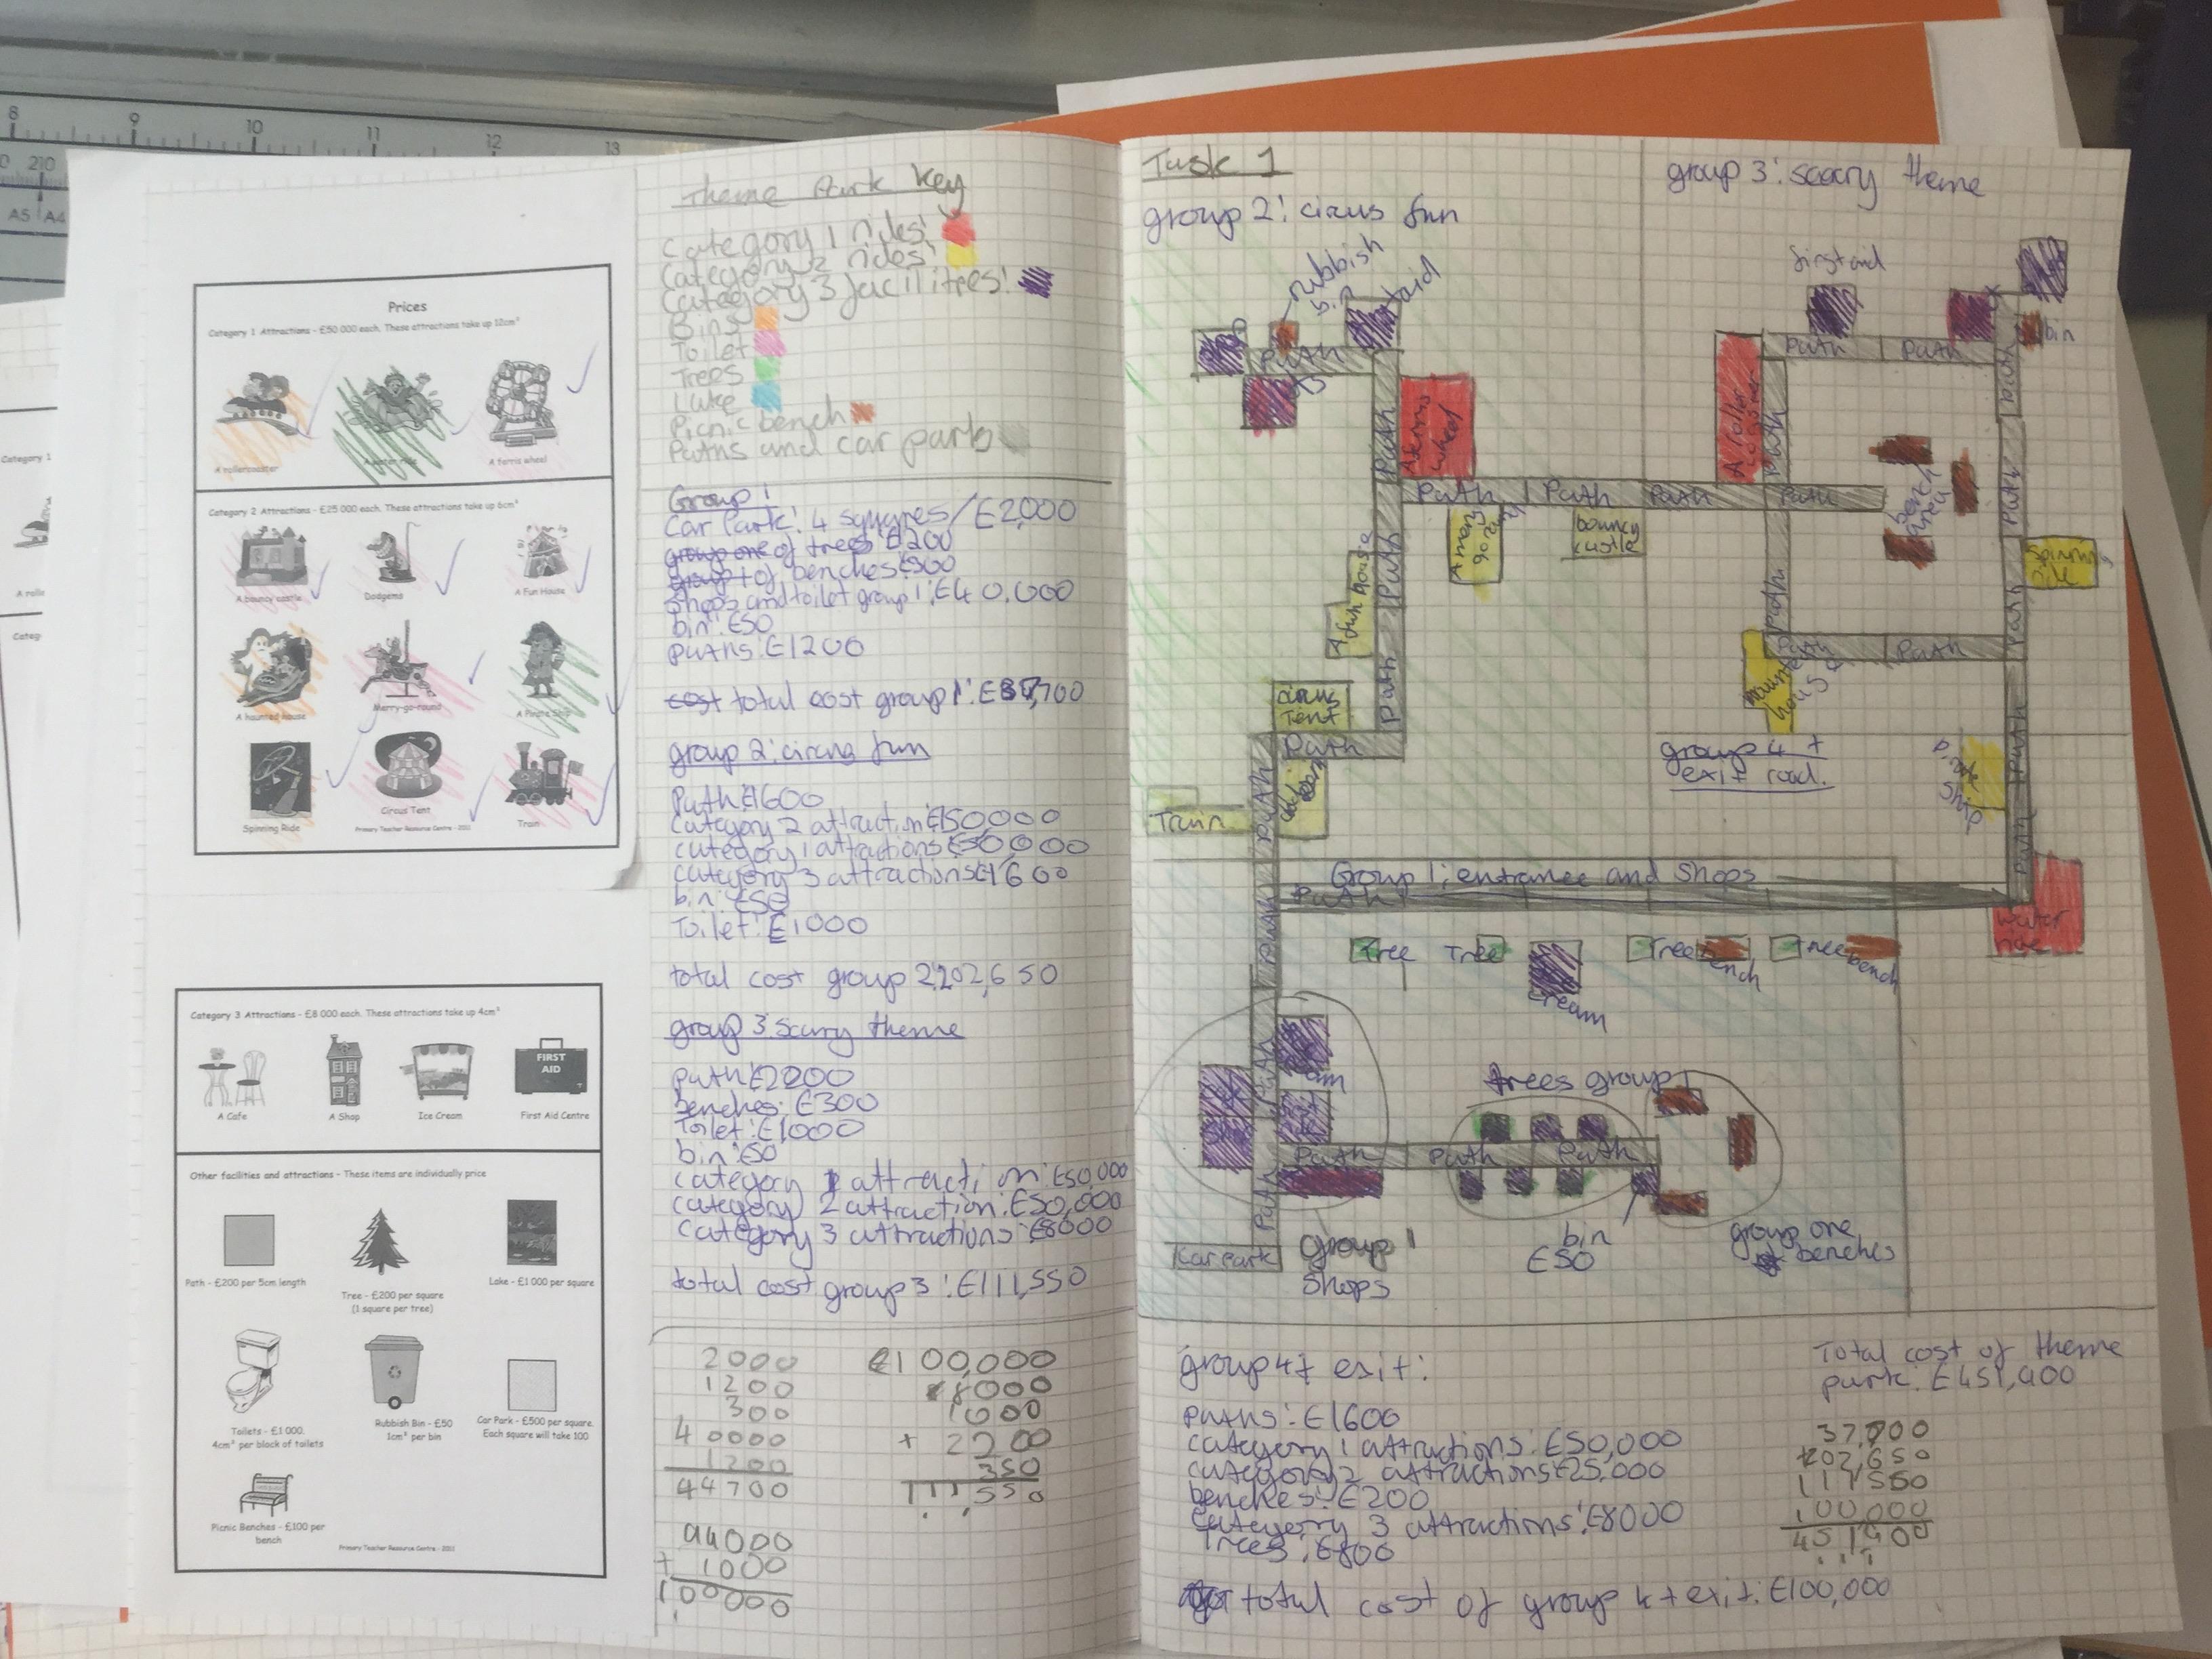 8 9 10 11 12 13
210
A5 A4
Category 1
Prices
Category 1 Attractions - £50 000 each. These attractions take up 12cm²
A rollercoaster
A water ride
A ferris wheel
Category 2 Attractions - £25 000 each. These attractions take up 6cm²
A bouncy castle
Dodgems
A Fun House
A haunted house
Merry-go-round
A Pirate Ship
Spinning Ride
Circus Tent
Train
Primary Teacher Resource Centre - 2011
Category 3 Attractions - £8 000 each. These attractions take up 4cm²
FIRST
AID
A Cafe
A Shop
Ice Cream
First Aid Centre
Other facilities and attractions - These items are individually price
Path - £200 per 5cm length
Tree - £200 per square
(1 square per tree)
Lake - £1 000 per square
Toilets - £1 000.
4cm² per block of toilets
Rubbish Bin - £50
1cm² per bin
Car Park - £500 per square.
Each square will take 100
Picnic Benches - £100 per
bench
Primary Teacher Resource Centre - 2011
Theme Park Key
Category 1 rides:
Category 2 rides:
Category 3 facilitees:
Bins
Toilet
Trees
Lake
Picnic bench
Paths and car park
Group 1
Car Park: 4 squares/£2,000
group one of trees £1200
group 1 of benches: £300
Shops and toilet group 1: £40,000
bin: £50
paths: £1200
cost total cost group 1: £37,700
group 2: circus fun
Path: £1600
Category 2 attraction: £150,000
category 1 attractions £50,000
category 3 attractions £1600
bin: £50
Toilet: £1000
total cost group 2: 202,650
group 3: scary theme
path: £2200
benches: £300
Toilet: £1000
bin: £50
category 1 attraction: £50,000
category 2 attraction: £50,000
category 3 attractions: £8000
total cost group 3: £111,550
2000
1200
300
40000
1200
44700
£100,000
8000
1000
+ 2200
350
111,550
99000
+ 1000
100000
Task 1
group 2: cirus fun
group 3: scary theme
rubbish
bin
first aid
bin
Path
A ferris
wheel
A roller
coaster
bench
area
A merry
go round
bouncy
castle
A fun house
Spinning
ride
cirus
Tent
haunted
house
Train
group 4 +
exit road.
pirate
ship
Group 1: entrance and shops
Path
water
ride
Tree Tree Tree bench Tree bench
cream
trees group 1
Path Path Path
Car park
group 1
shops
bin
£50
group one
of benches
group 4 + exit:
paths: £1600
category 1 attractions: £50,000
category 2 attractions £25,000
benches: £200
category 3 attractions: £8000
Trees: £800
total cost of group 4 + exit: £100,000
Total cost of theme
park: £451,900
37,700
202,650
111550
100,000
451900